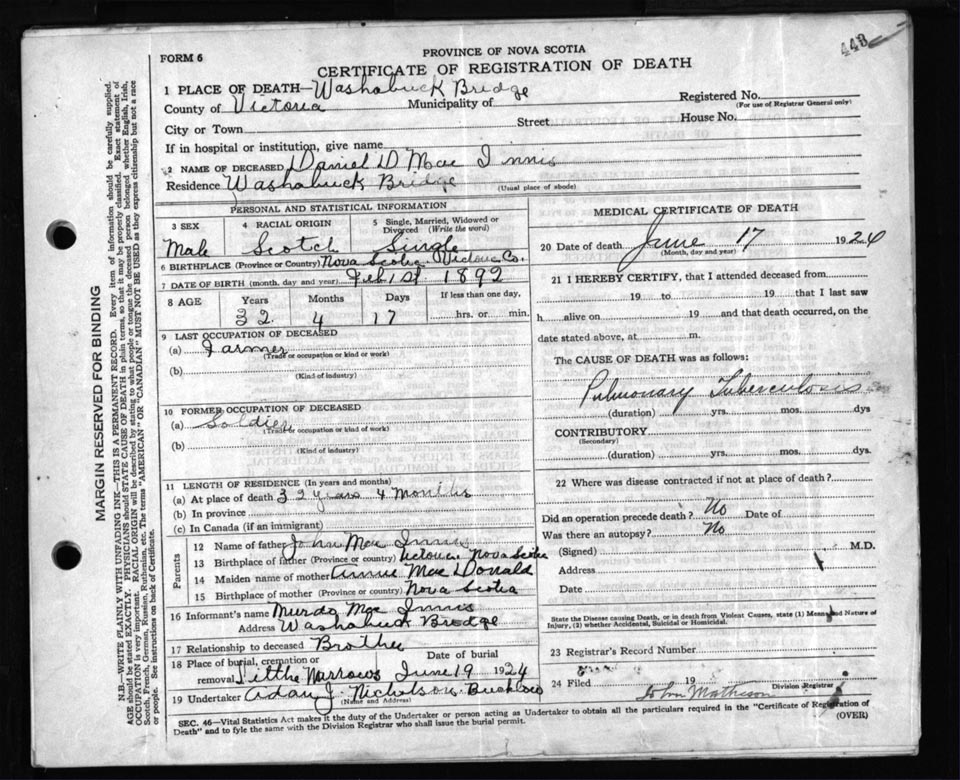 448
PROVINCE OF NOVA SCOTIA
FORM 6
CERTIFICATE OF REGISTRATION OF DEATH
1 PLACE OF DEATH—Washabuck Bridge
County of Victoria Municipality of
Registered No.
(For use of Registrar General only)
City or Town Street House No.
If in hospital or institution, give name
2 NAME OF DECEASED Daniel D Mac Innis
Residence Washabuck Bridge
(Usual place of abode)
PERSONAL AND STATISTICAL INFORMATION
3 SEX 4 RACIAL ORIGIN 5 Single, Married, Widowed or Divorced (Write the word)
Male Scotch Single
6 BIRTHPLACE (Province or Country) Nova Scotia Victoria Co.
7 DATE OF BIRTH (month, day and year) Feb 1st 1892
8 AGE Years Months Days If less than one day,
32 4 17 hrs. or min.
9 LAST OCCUPATION OF DECEASED
(a) Farmer
(Trade or occupation or kind or work)
(b)
(Kind of industry)
10 FORMER OCCUPATION OF DECEASED
(a) Soldier
(Trade or occupation or kind of work)
(b)
(Kind of industry)
11 LENGTH OF RESIDENCE (In years and months)
(a) At place of death 32 years 4 Months
(b) In province
(c) In Canada (if an immigrant)
Parents
12 Name of father John Mac Innis
13 Birthplace of father (Province or country) Victoria Nova Scotia
14 Maiden name of mother Annie Mac Donald
15 Birthplace of mother (Province or country) Nova Scotia
16 Informant's name Murdo Mac Innis
Address Washabuck Bridge
17 Relationship to deceased Brother
18 Place of burial, cremation or removal Date of burial
Little Narrows June 19 1924
19 Undertaker J. Nicholson
(Name and Address)
MEDICAL CERTIFICATE OF DEATH
20 Date of death June 17 1924
(Month, day and year)
21 I HEREBY CERTIFY, that I attended deceased from
19 to 19 that I last saw
h alive on 19 and that death occurred, on the
date stated above, at m.
The CAUSE OF DEATH was as follows:
Pulmonary Tuberculosis
(duration) yrs. mos. dys
CONTRIBUTORY
(Secondary)
(duration) yrs. mos. dys.
22 Where was disease contracted if not at place of death?
Did an operation precede death? No Date of
Was there an autopsy? No
(Signed) M.D.
Address
Date
State the Disease causing Death, or in death from Violent Causes, state (1) Means and Nature of
Injury, (2) whether Accidental, Suicidal or Homicidal.
23 Registrar's Record Number
24 Filed 19
John Matheson Division Registrar
SEC. 46—Vital Statistics Act makes it the duty of the Undertaker or person acting as Undertaker to obtain all the particulars required in the "Certificate of Registration of
Death" and to fyle the same with the Division Registrar who shall issue the burial permit.
(OVER)
MARGIN RESERVED FOR BINDING
N.B.—WRITE PLAINLY WITH UNFADING INK—THIS IS A PERMANENT RECORD. Every item of information should be carefully supplied.
AGE should be stated EXACTLY. PHYSICIANS should STATE CAUSE OF DEATH in plain terms, so that it may be properly classified. Exact statement of
OCCUPATION is very important. RACIAL ORIGIN will be described by stating to what people or tongue the deceased person belonged whether English, Irish,
Scotch, French, German, Russian, Ruthenian, etc. The terms "AMERICAN" OR "CANADIAN" MUST NOT BE USED as they express citizenship but not a race
or people. See instructions on back of Certificate.